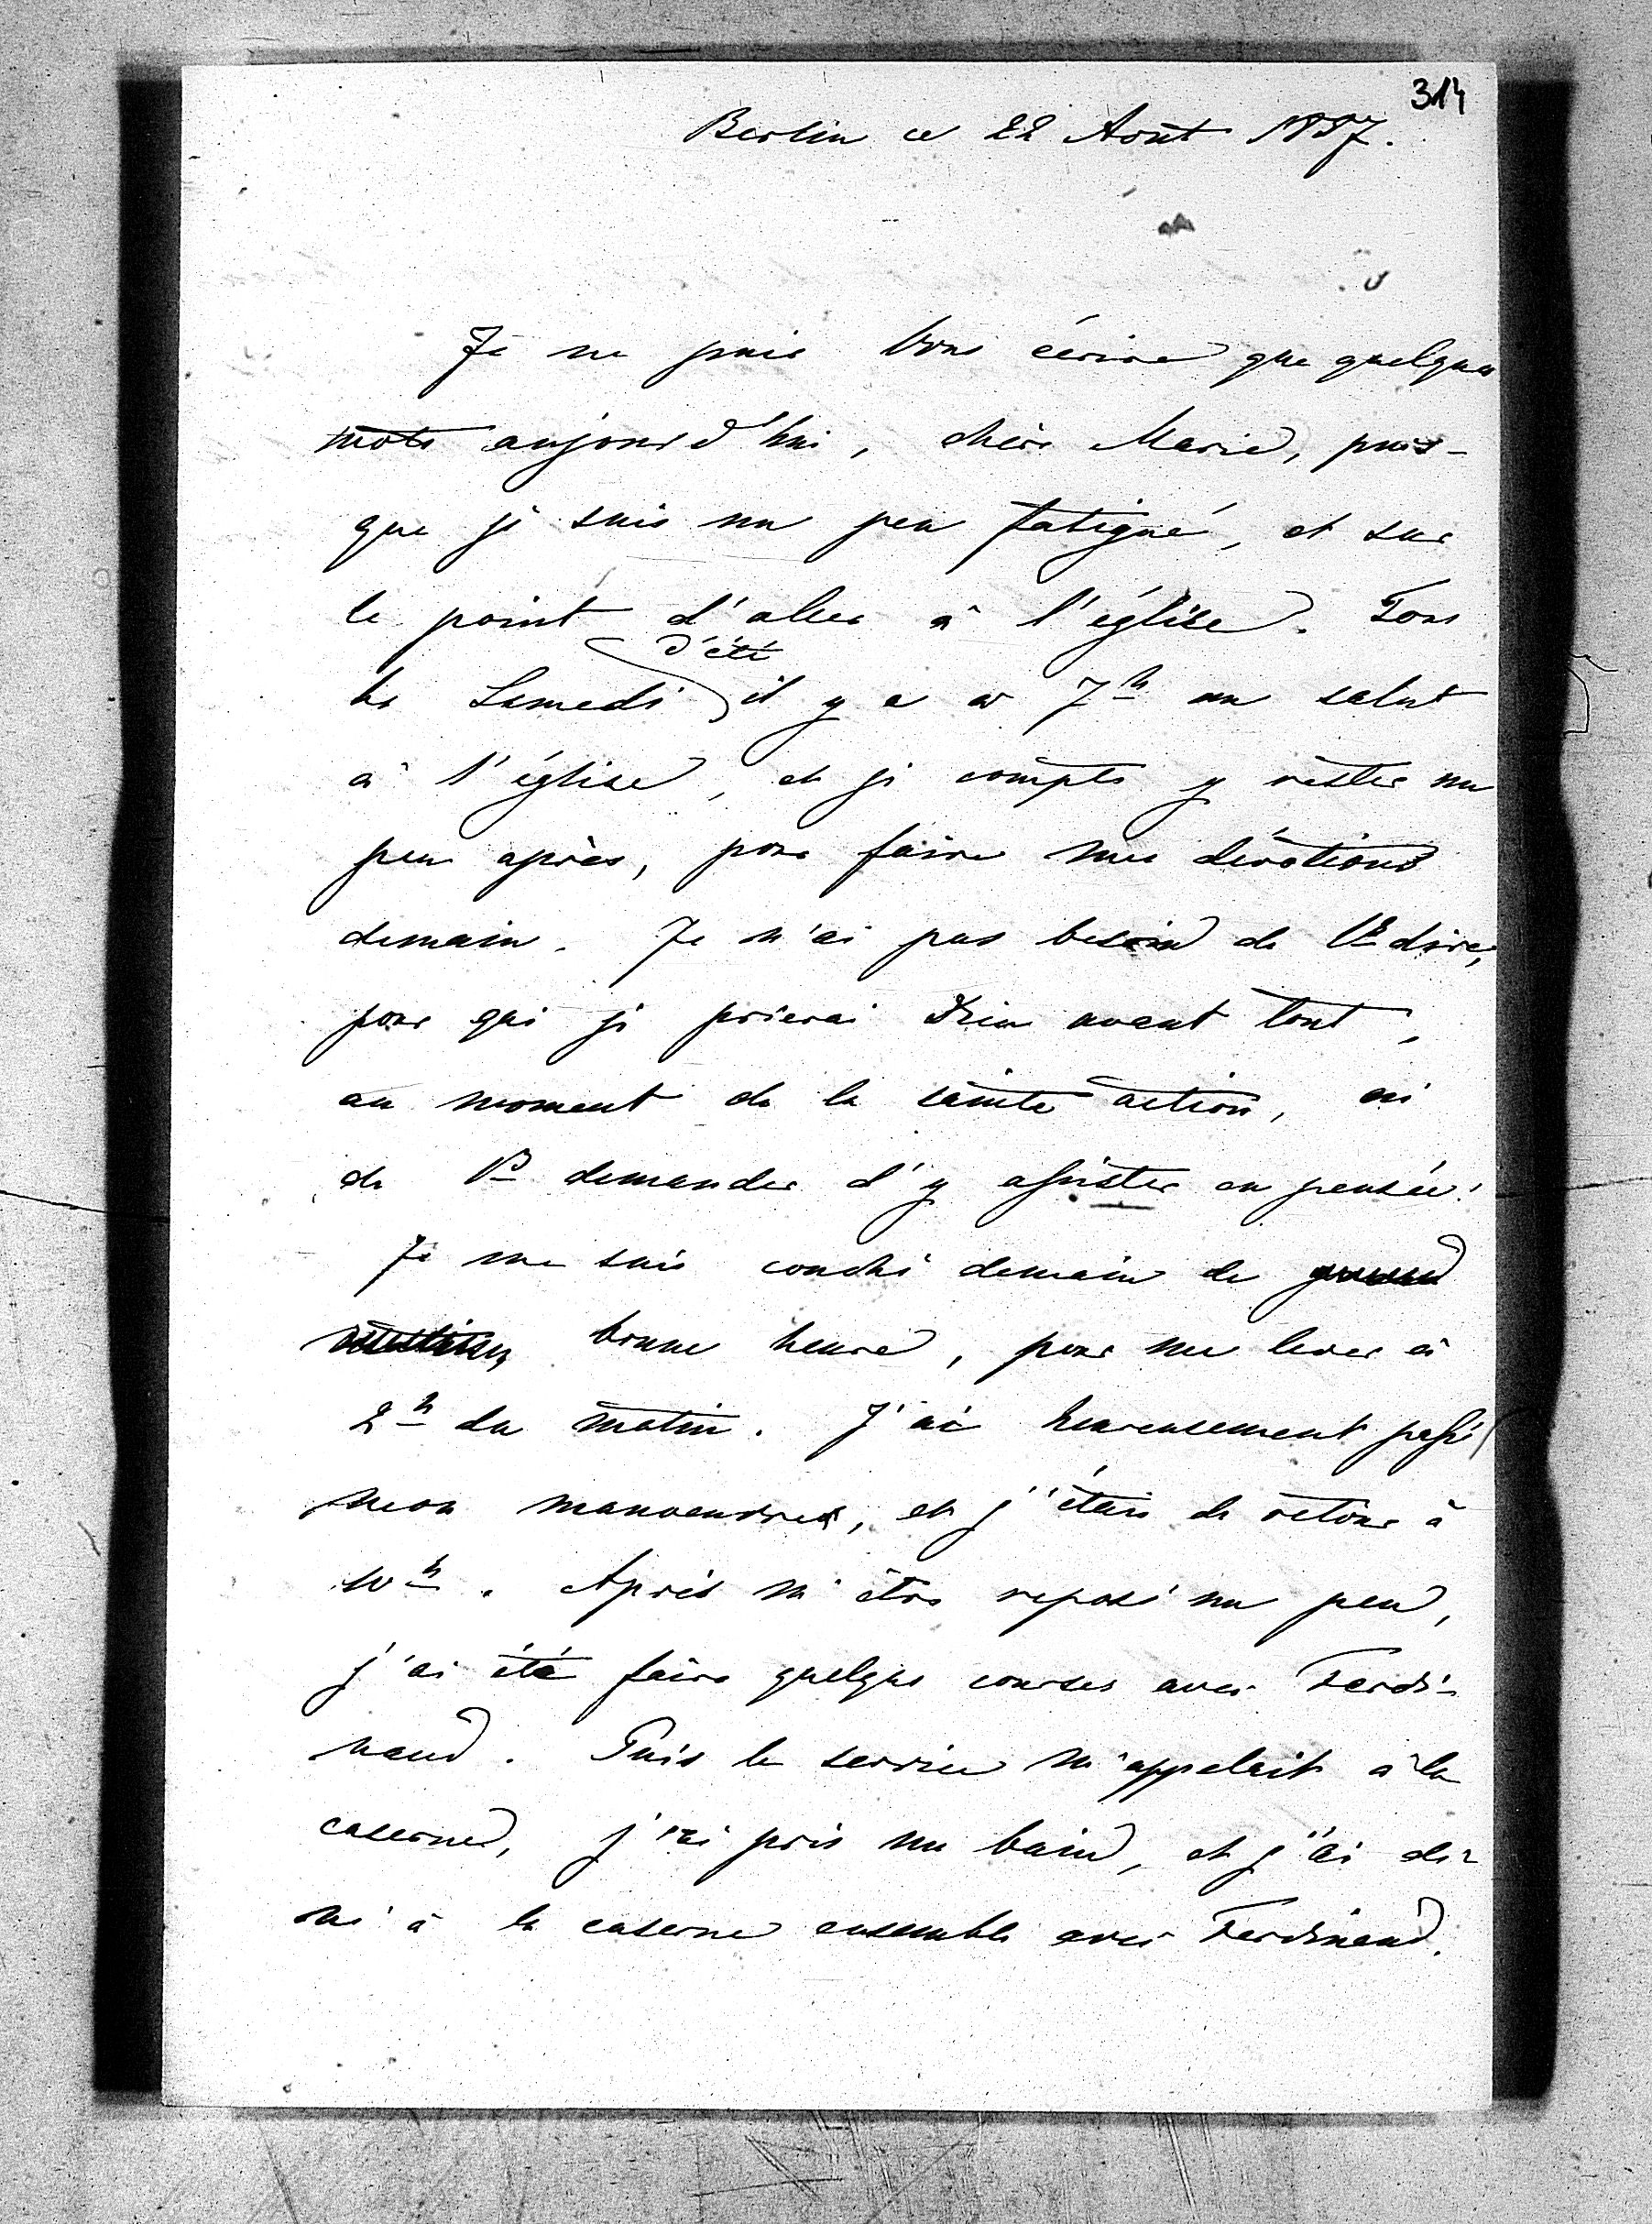 314
Berlin ce 22 Août 1857.
Je ne puis Vous écrire que quelques
mots aujourd'hui, chère Marie, puis-
que je suis un peu fatigué, et sur
le point d'aller à l'église. Tous
d'été
les Samedi il y a à 7h un salut
à l'église, et je compte y rester un
peu après, pour faire mes dévotions
demain. Je n'ai pas besoin de Vs dire,
pour qui je prierai Dieu avant tout,
au moment de la sainte action, ni
de Vs demander d'y assister en pensée!
Je me suis couché demain de grand
bonne heure, pour me lever à
2h du matin. J'ai heureusement passé
mon manoeuvres, et j'étais de retour à
10h. Après m'être reposé un peu,
j'ai été faire quelque courses avec Ferdi-
nand. Puis le service m'appelait à la
caserne, j'ai pris un bain, et j'ai dî-
né à la caserne ensemble avec Ferdinand.